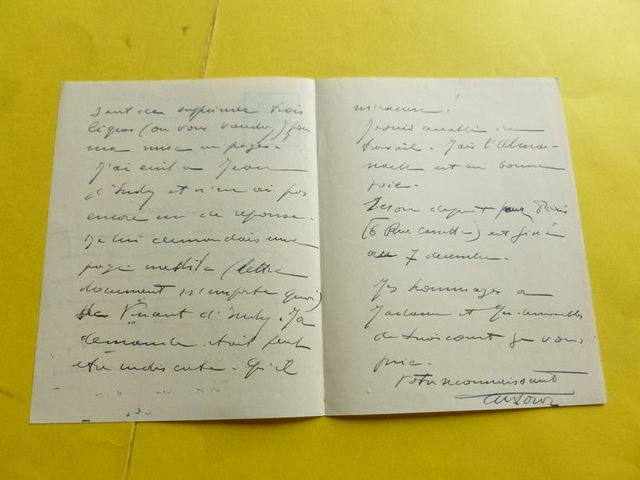 sant de supprimer trois
lignes (où vous voudrez) pour
ma mise en pages.
J'ai écrit à Jean
d'Indy et n'en ai pas
encore eu de réponse.
Je lui demandais une
page inédite (lettre
document n'importe quoi)
de Vincent d'Indy. Ma
demande était peut
être indiscrète. Qu'il
m'excuse!
Je suis accablé de
travail. Mais l'Alma-
nach est en bonne
voie.
Mon départ pour Paris
(6 Rue) est fixé
au 7 décembre.
Mes hommages à
Madame et Mesdemoiselles
de je vous
prie.
Votre reconnaissant